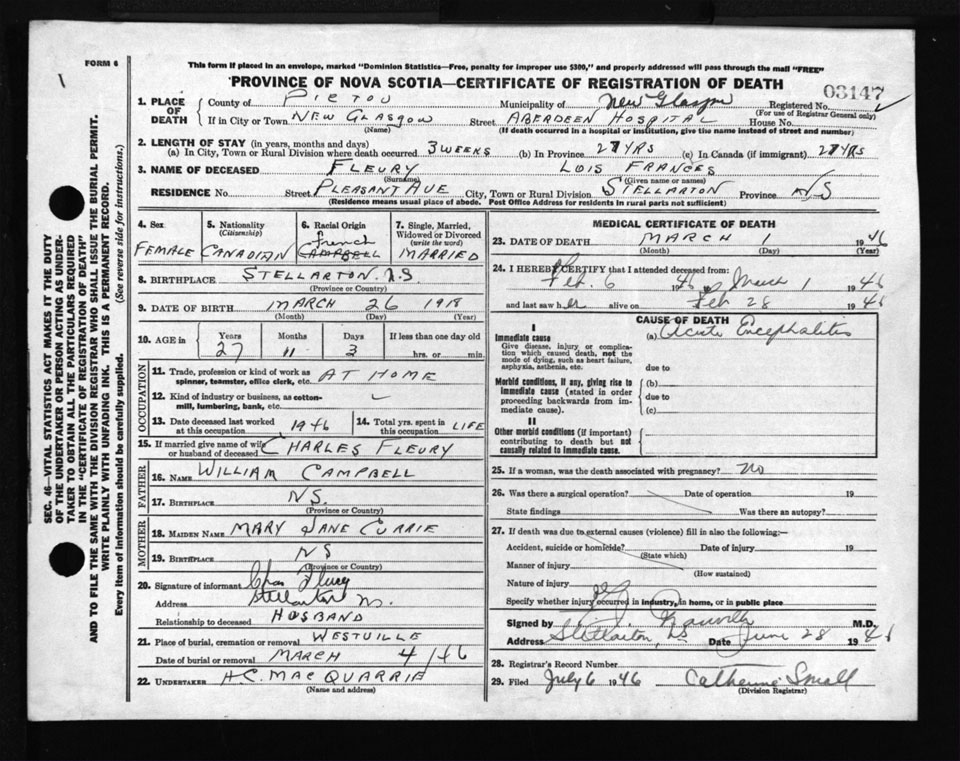 FORM 6
This form if placed in an envelope, marked "Dominion Statistics—Free, penalty for improper use $300," and properly addressed will pass through the mail "FREE"
PROVINCE OF NOVA SCOTIA—CERTIFICATE OF REGISTRATION OF DEATH
03147
1. PLACE OF DEATH County of PICTOU Municipality of New Glasgow Registered No.
(For use of Registrar General only)
If in City or Town NEW GLASGOW Street ABERDEEN HOSPITAL House No.
(Name) (If death occurred in a hospital or institution, give the name instead of street and number)
2. LENGTH OF STAY (in years, months and days)
(a) In City, Town or Rural Division where death occurred 3 WEEKS (b) In Province 27 YRS (c) In Canada (if immigrant) 27 YRS
3. NAME OF DECEASED FLEURY LOIS FRANCES
(Surname) (Given name or names)
RESIDENCE No. Street PLEASANT AVE City, Town or Rural Division STELLARTON Province NS
(Residence means usual place of abode. Post Office Address for residents in rural parts not sufficient)
4. Sex 5. Nationality (Citizenship) 6. Racial Origin 7. Single, Married, Widowed or Divorced (write the word)
French
FEMALE CANADIAN CAMPBELL MARRIED
8. BIRTHPLACE STELLARTON N.S
(Province or County)
9. DATE OF BIRTH MARCH 26 1918
(Month) (Day) (Year)
10. AGE in Years Months Days If less than one day old
27 11 3 hrs. or min.
OCCUPATION
11. Trade, profession or kind of work as spinner, teamster, office clerk, etc. AT HOME
12. Kind of industry or business, as cotton-mill, lumbering, bank, etc.
13. Date deceased last worked at this occupation 1946 14. Total yrs. spent in this occupation LIFE
15. If married give name of wife or husband of deceased CHARLES FLEURY
FATHER
16. NAME WILLIAM CAMPBELL
17. BIRTHPLACE NS.
(Province or County)
MOTHER
18. MAIDEN NAME MARY JANE CURRIE
19. BIRTHPLACE NS
(Province or County)
20. Signature of informant Chas Fleury
Address Stellarton
Relationship to deceased HUSBAND
21. Place of burial, cremation or removal WESTVILLE
Date of burial or removal MARCH 4/46
22. UNDERTAKER H.C. MACQUARRIE
(Name and address)
MEDICAL CERTIFICATE OF DEATH
23. DATE OF DEATH MARCH 1 1946
(Month) (Day) (Year)
24. I HEREBY CERTIFY that I attended deceased from:
Feb. 6 1946 to March 1 1946
and last saw her alive on Feb 28 1946
CAUSE OF DEATH
I
Immediate cause (a) Acute Encephalitis
Give disease, injury or complication which caused death, not the mode of dying, such as heart failure, asphyxia, asthenia, etc.
due to
Morbid conditions, if any, giving rise to immediate cause (stated in order proceeding backwards from immediate cause). (b)
due to
(c)
II
Other morbid conditions (if important) contributing to death but not causally related to immediate cause.
25. If a woman, was the death associated with pregnancy? no
26. Was there a surgical operation? Date of operation 19
State findings Was there an autopsy?
27. If death was due to external causes (violence) fill in also the following:—
Accident, suicide or homicide? Date of injury 19
(State which)
Manner of injury
(How sustained)
Nature of injury
Specify whether injury occurred in industry, in home, or in public place
Signed by M.D.
Address Stellarton NS Date June 28 1946
28. Registrar's Record Number
29. Filed July 6 1946 Catherine Small
(Division Registrar)
SEC. 46—VITAL STATISTICS ACT MAKES IT THE DUTY
OF THE UNDERTAKER OR PERSON ACTING AS UNDER-
TAKER TO OBTAIN ALL THE PARTICULARS REQUIRED
IN THE "CERTIFICATE OF REGISTRATION OF DEATH"
AND TO FILE THE SAME WITH THE DIVISION REGISTRAR WHO SHALL ISSUE THE BURIAL PERMIT.
WRITE PLAINLY WITH UNFADING INK. THIS IS A PERMANENT RECORD.
Every item of information should be carefully supplied. (See reverse side for instructions.)